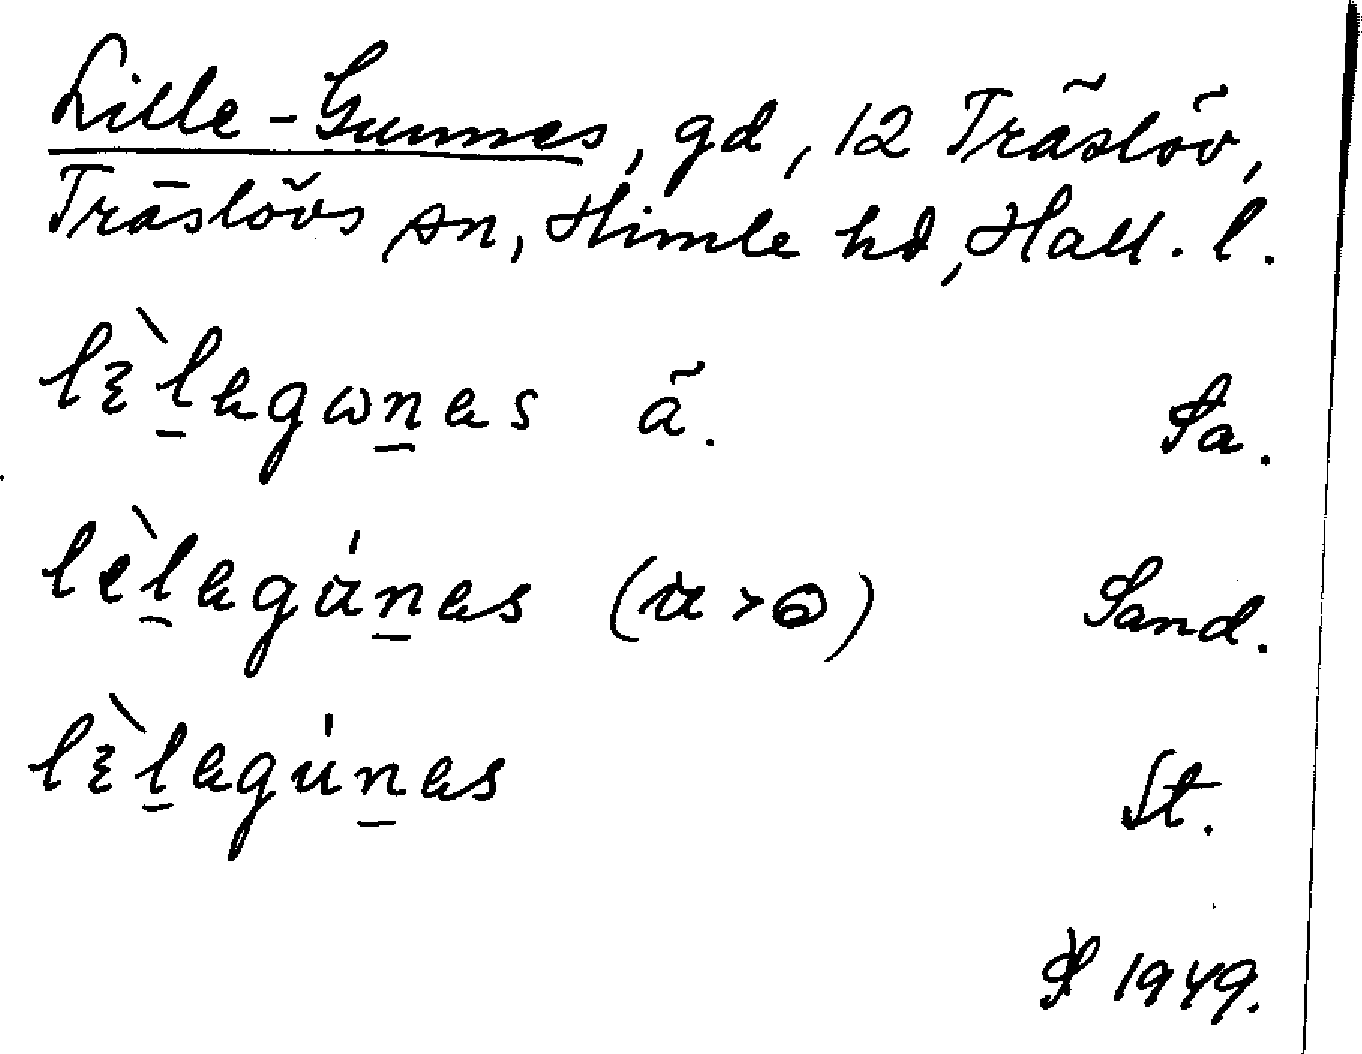 Lille-Gunnes, gd, 12 Träslöv,
Träslövs sn, Himle hd, Hall. l.
lɛ̀l̠agωn̠as ä. Sa.
lèl̠agún̠as (u > ɷ) Sand.
lɛ̀l̠agún̠as St.
1949.